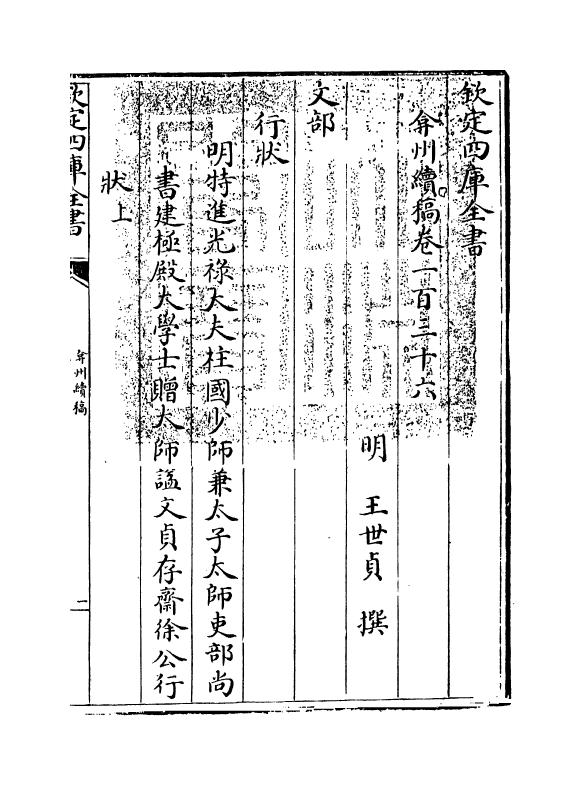 欽定四庫全書
弇州續稿卷一百三十六
明 王世貞 撰
文部
行狀
明特進光祿大夫柱國少師兼太子太師吏部尚
書建極殿大學士贈太師諡文貞存齋徐公行
狀上
欽定四庫全書
弇州續稿